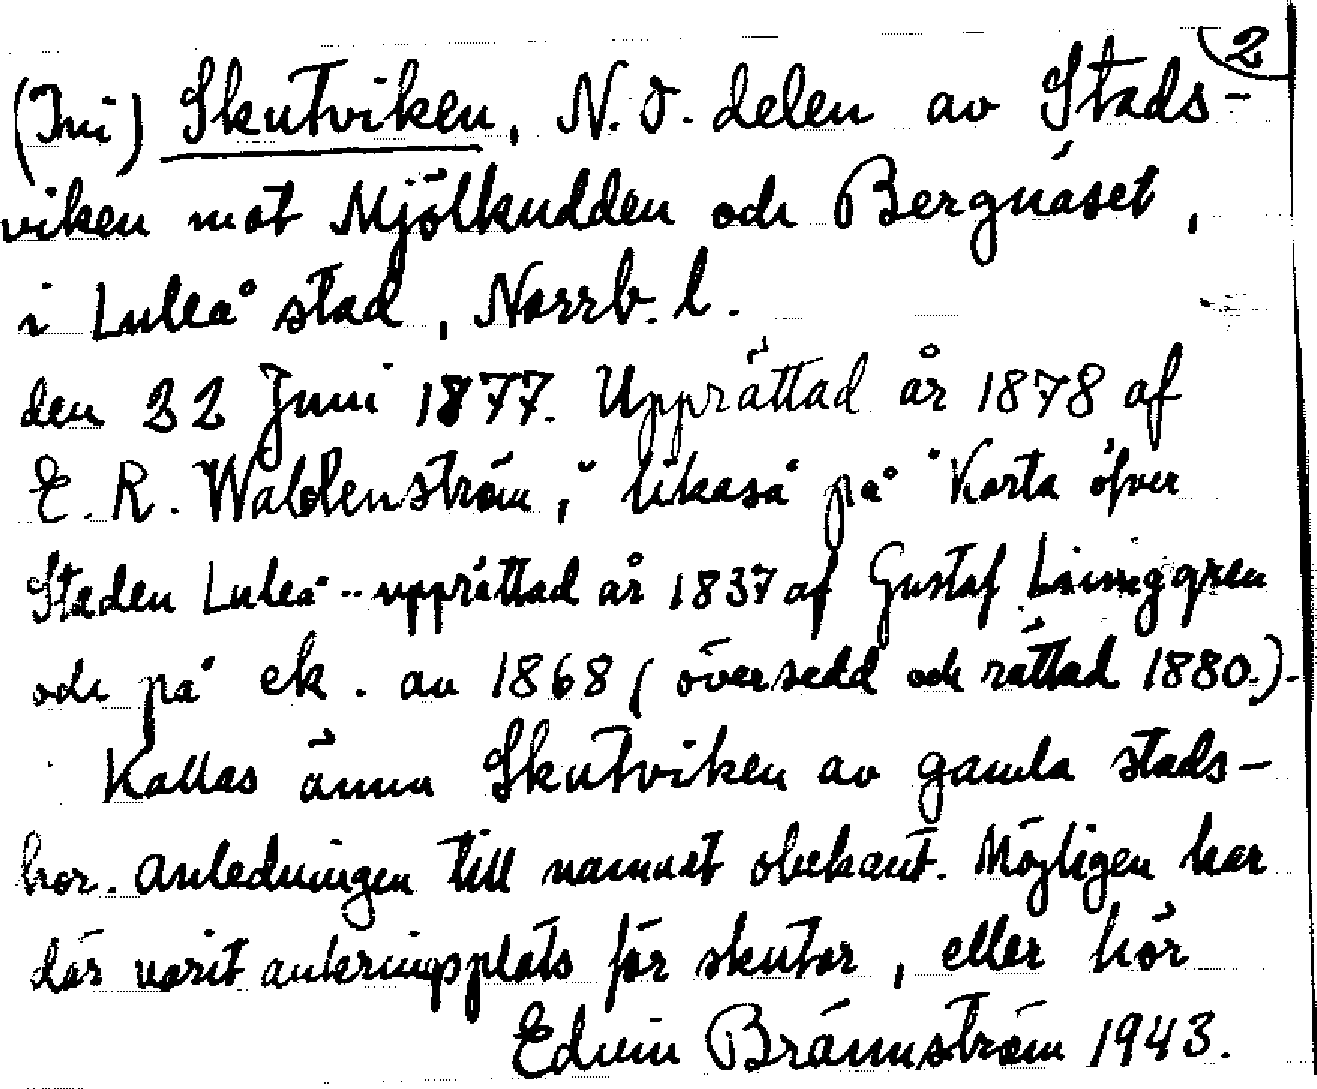 2
(Ini) Skutviken, N.O. delen av Stads-
viken mot Mjölkudden och Bergnäset,
i Luleå stad, Norrb. l.
den 22 Juni 1877. Upprättad år 1878 af
E. R. Waldenström," likaså på "Karta öfver
Staden Luleå .. upprättad år 1837 af Gustaf
och på ek. av 1868 (översedd och rättad 1880.).
Kallas ännu Skutviken av gamla stads-
bor. Anledningen till namnet obekant. Möjligen har
där varit ankringsplats för skutor, eller hör
Edvin Brännström 1943.